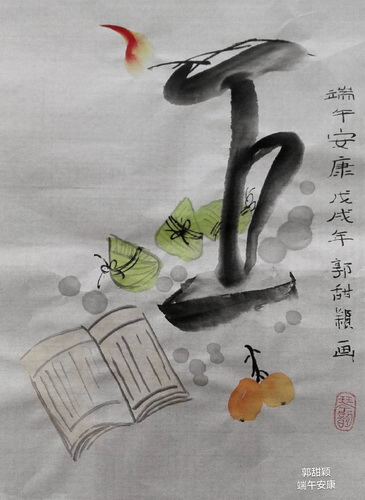 五
端午安康戊戌年郭甜穎画
郭甜颖
端午安康